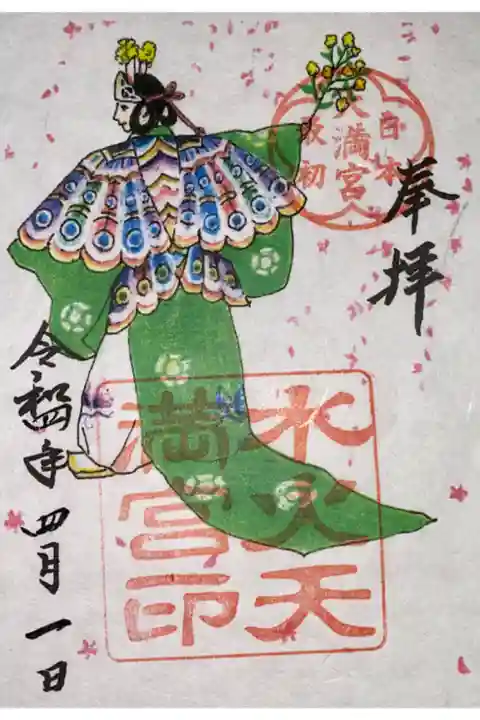 奉拝
日本
最初
天満宮
水火天
満宮印
令和四年四月一日